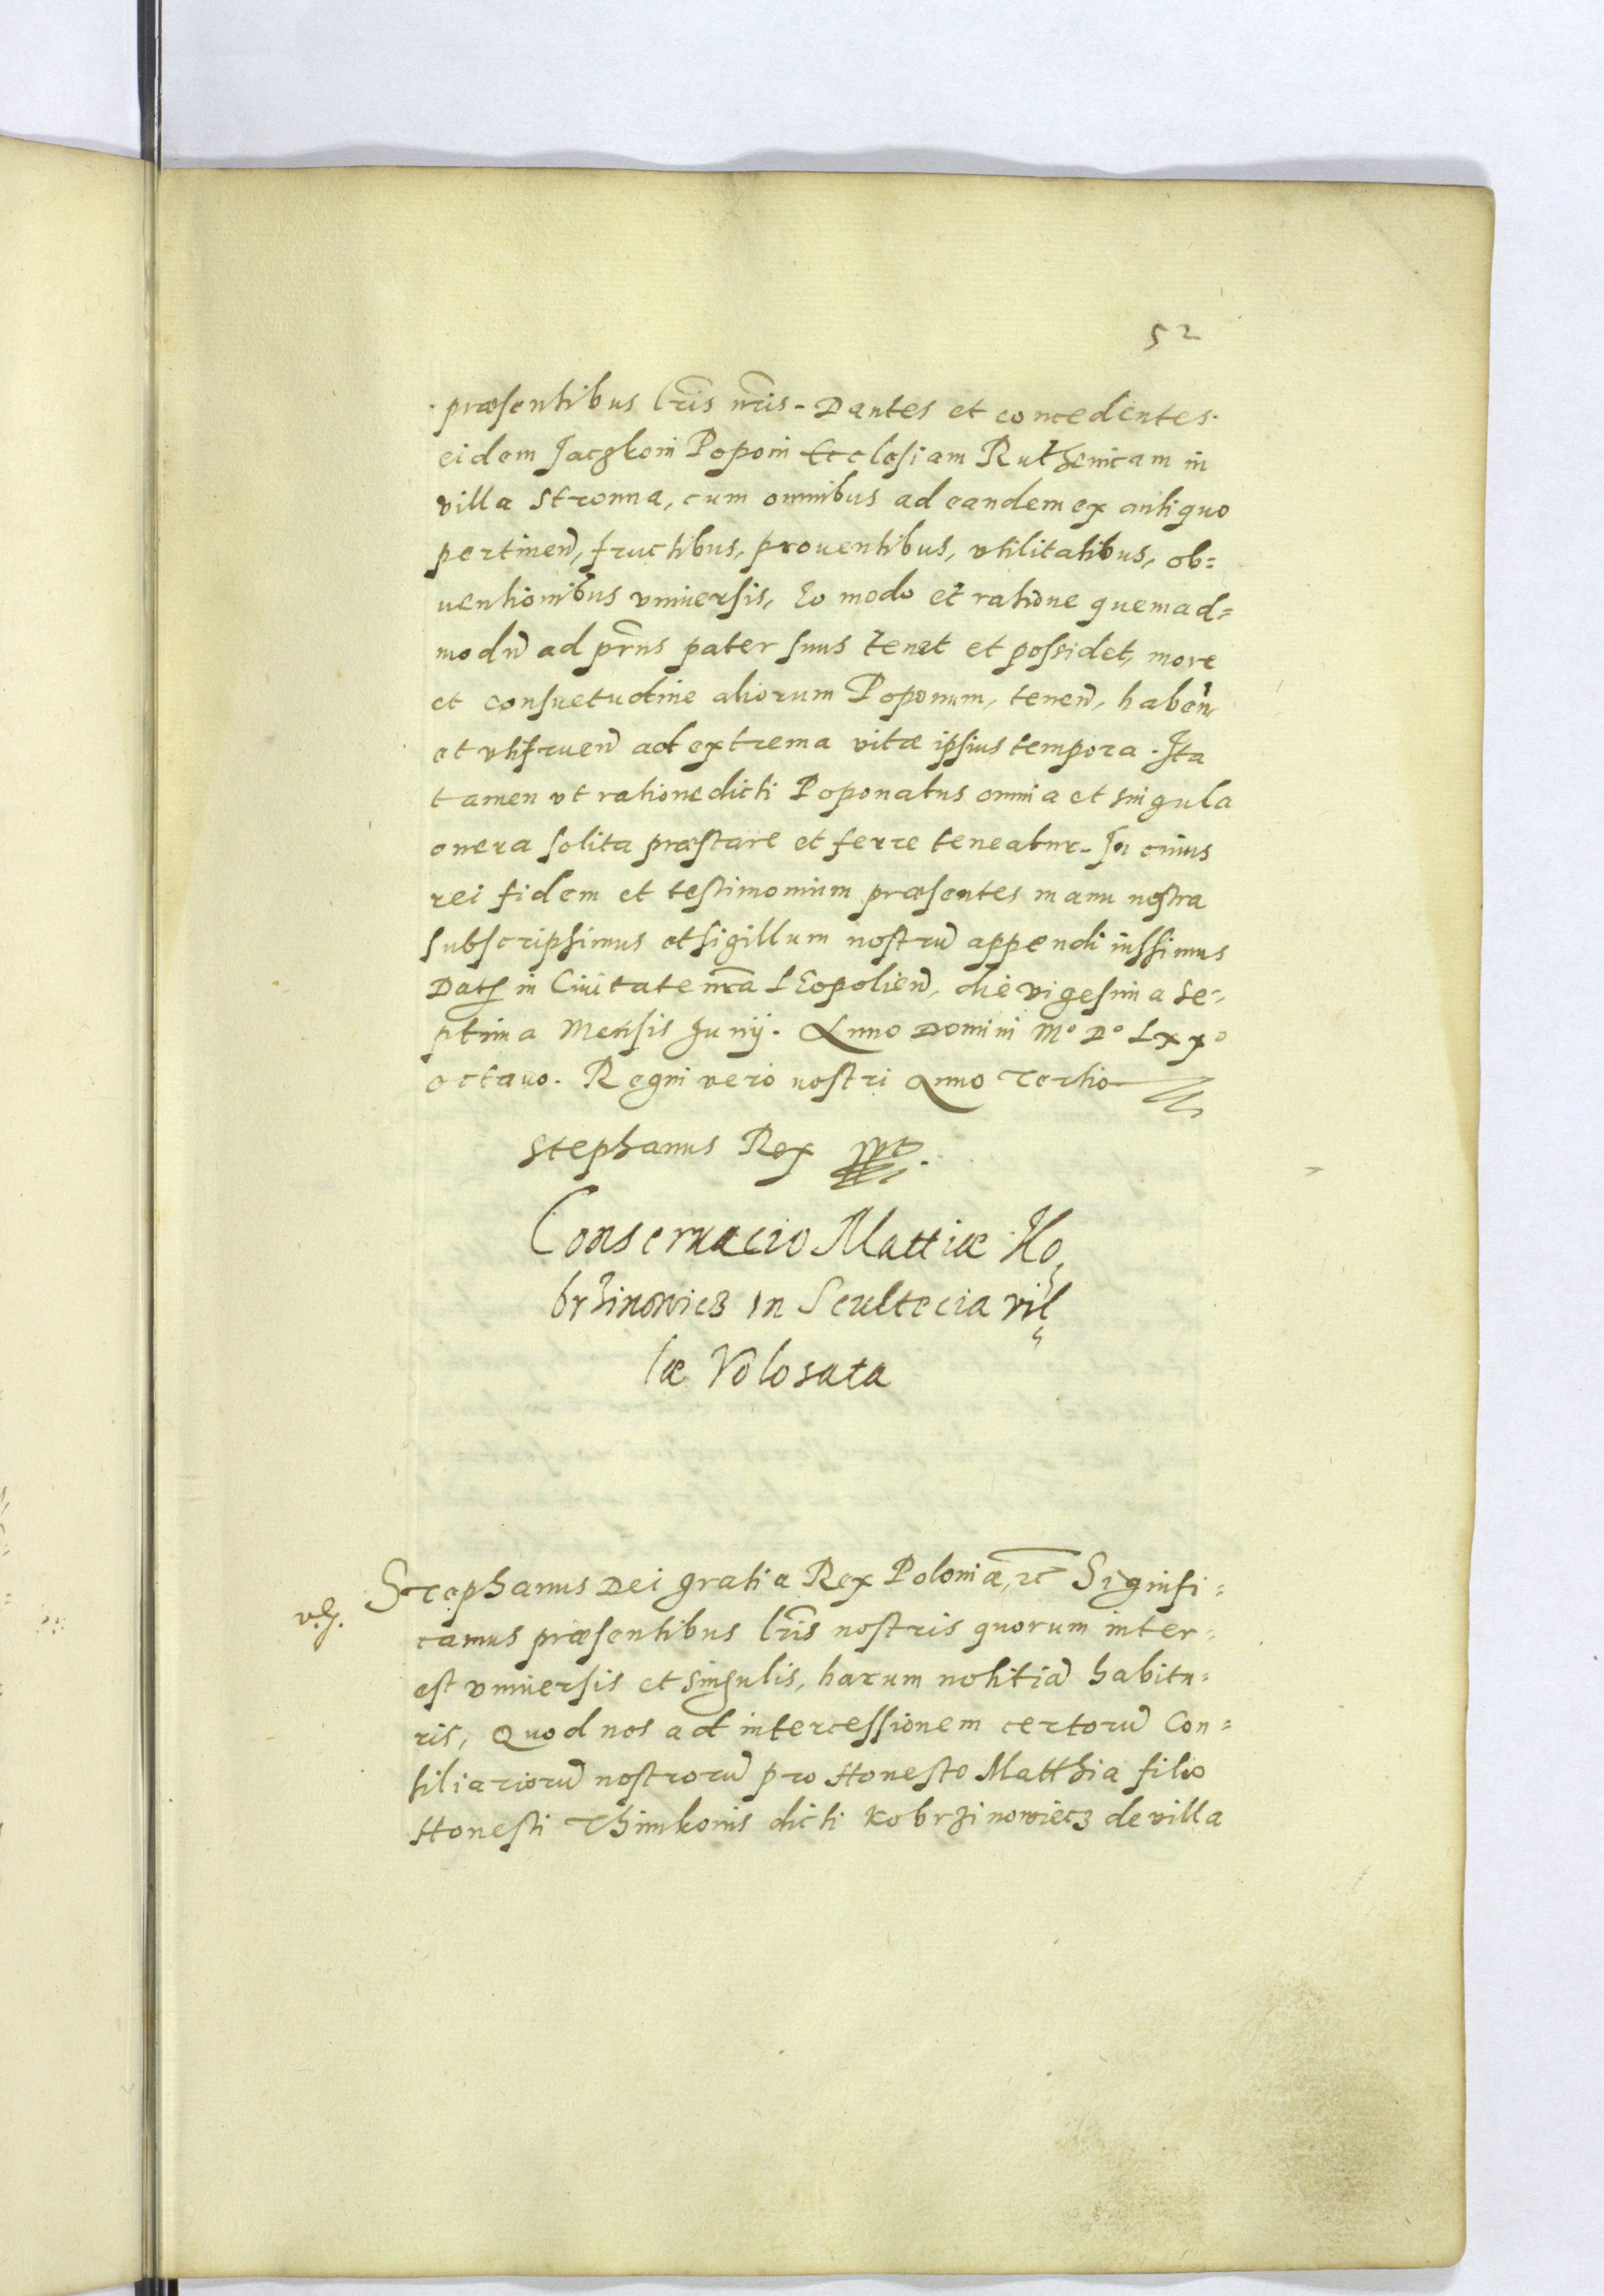 52
præsentibus l̃ris ñris. Dantes et concedentes
eidem Jaczkoni Poponi Ecclesiam Ruthenicam in
villa Stronna, cum omnibus ad eandem ex antiquo
pertineñ, fructibus, prouentibus, vtilitatibus, ob=
uentionibus vniuersis, Eo modo et ratione quemad=
modũ ad p̃rns pater suus tenet et possidet, more
et consuetudine aliorum Poponum, teneñ, habeñ,
et vtifrueñ ad extrema vitæ ipsius tempora. Ita
tamen vt ratione dicti Poponatus omnia et singula
onera solita præstare et ferre teneatur. In cuius
rei fidem et testimonium præsentes manu nostra
subscripsimus et sigillum nostrũ appendi iussimus
Dat̃ in Ciuitate ñra LEopolieñ, die vigesima se=
ptima Mensis Junij. Anno Domini M° D° Lxx°
octauo. Regni vero nostri Anno Tertio
Stephanus Rex
Conseruacio Mattiæ Ko,
brzinowicz in Scultecia vil,
læ Volosata
Stephanus Dei gratia Rex Poloniæ, ꝛc Signifi=
camus præsentibus l̃ris nostris quorum inter=
est vniuersis et singulis, harum notitiã habitu=
ris, Quod nos ad intercessionem certorũ Con=
siliariorũ nostrorũ pro Honesto Matthia filio
Honesti Thimkonis dicti Kobrzinowicz de villa